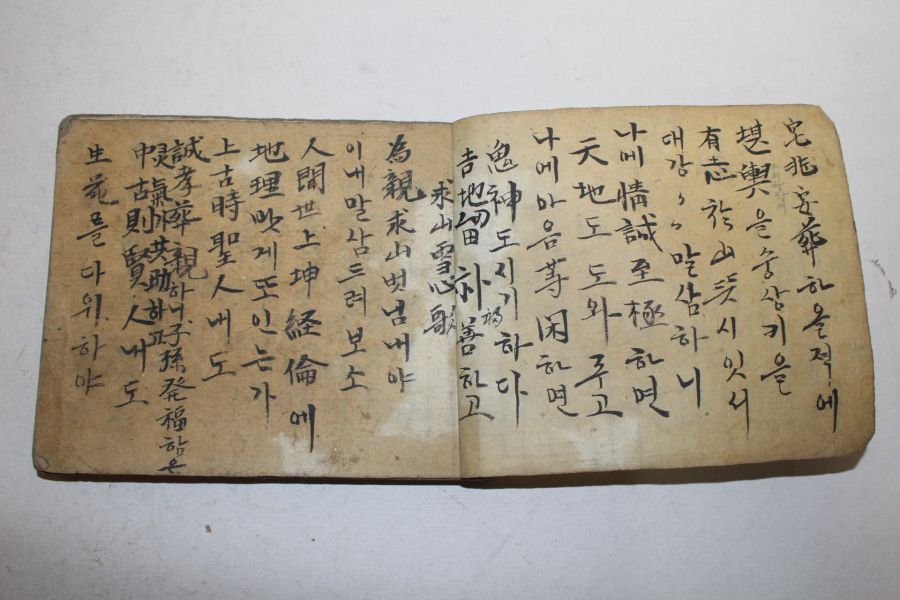 宅兆安葬하올젹에
堪輿을슝상키을
有志於山뜻시잇서
대강〻〻말삼하니
나에情誠至極하면
天地도도와쥬고
나에마음等閑하면
鬼神도시기하다
吉地留 善하고
求山雪心歌
為親求山벗님내야
이내말삼드려보소
人間世上坤経倫에
地理맛게또인는가
上古時聖人내도
誠孝葬親하니子孫発福함은
氣所共助하
中古則賢人내도
生死를다위하야